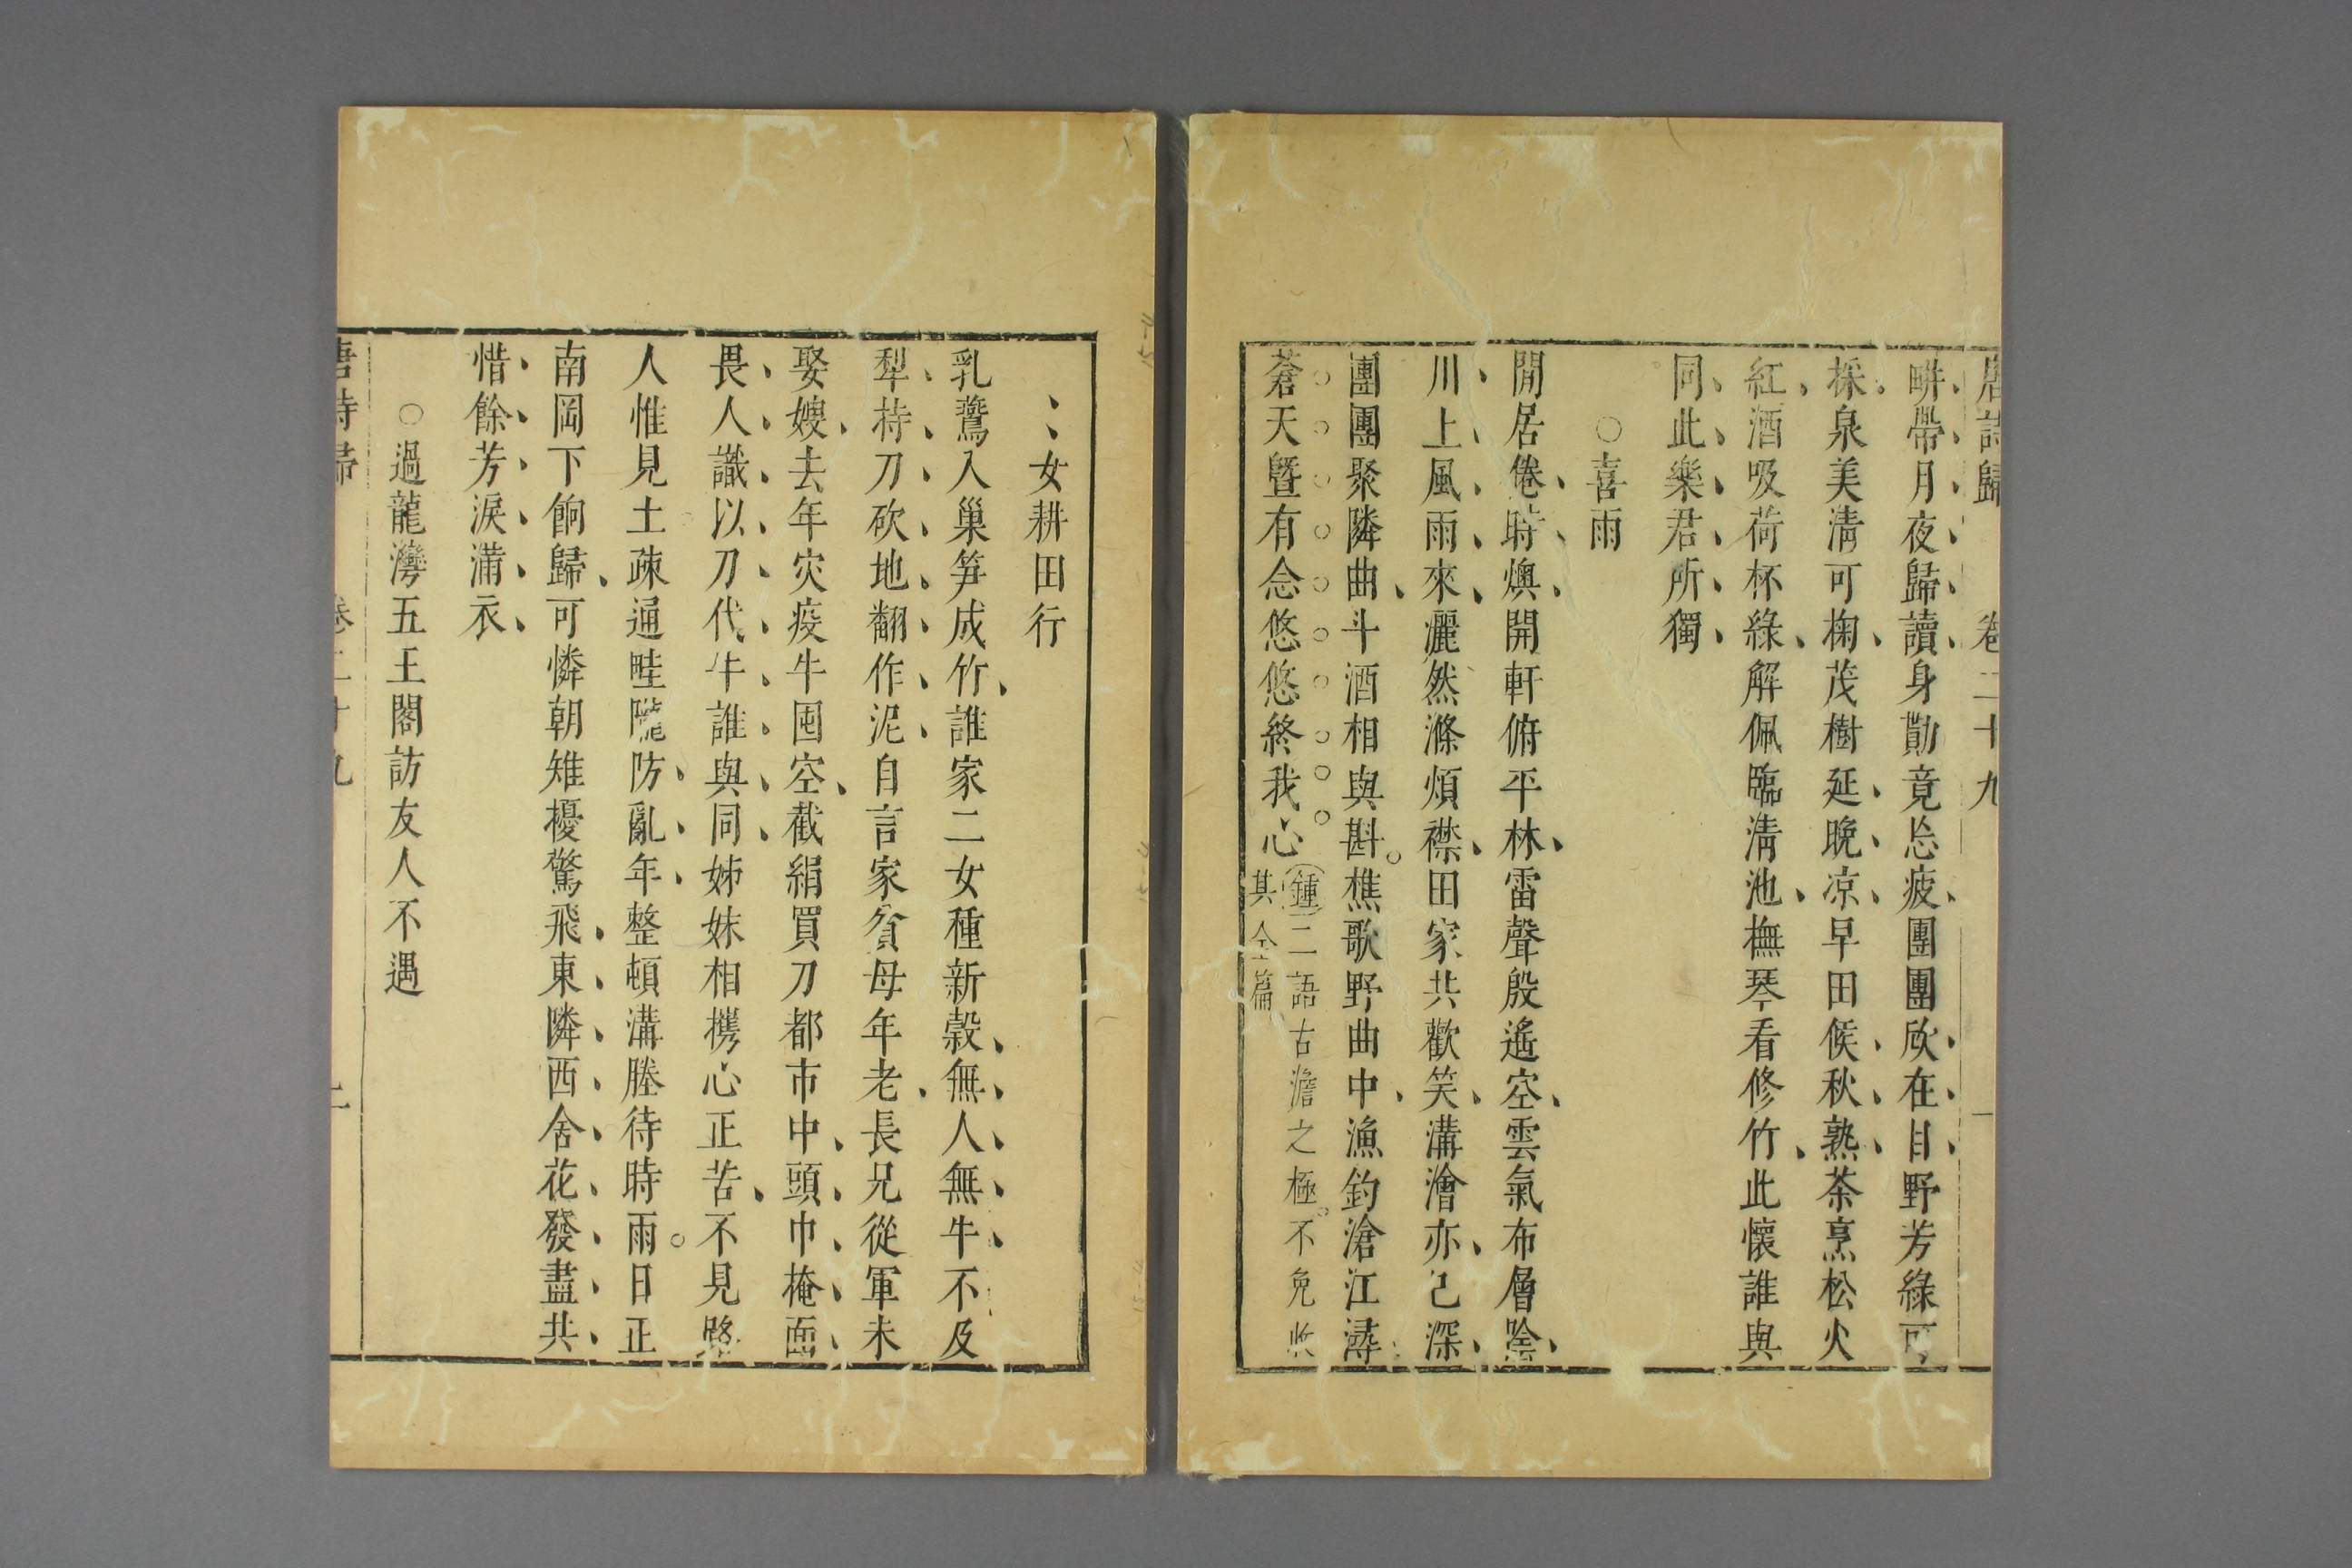 唐詩歸 卷二十九 一
畊帶月夜歸讀身勩竟忘疲團團欣在目野芳綠可
採泉美淸可掬茂樹延晚凉早田候秋熟茶烹松火
紅酒吸荷杯綠解佩臨淸池撫琴看修竹此懷誰與
同此樂君所獨
○喜雨
閒居倦時燠開軒俯平林雷聲殷遙空雲氣布層陰
川上風雨來灑然滌煩襟田家共歡笑溝澮亦已深
團團聚隣曲斗酒相與斟樵歌野曲中漁釣滄江潯
蒼天曁有念悠悠終我心
鍾二語古澹之極不免收
其全篇
女耕田行
乳鷰入巢笋成竹誰家二女種新穀無人無牛不及
犁持刀砍地翻作泥自言家貧母年老長兄從軍未
娶嫂去年灾疫牛囤空截絹買刀都市中頭巾掩面
畏人識以刀代牛誰與同姊妹相攜心正苦不見路
人惟見土疎通畦隴防亂年整頓溝塍待時雨日正
南岡下餉歸可憐朝雉擾驚飛東隣西舍花發盡共
惜餘芳淚滿衣
○過龍灣五王閣訪友人不遇
唐詩歸 卷二十九 二